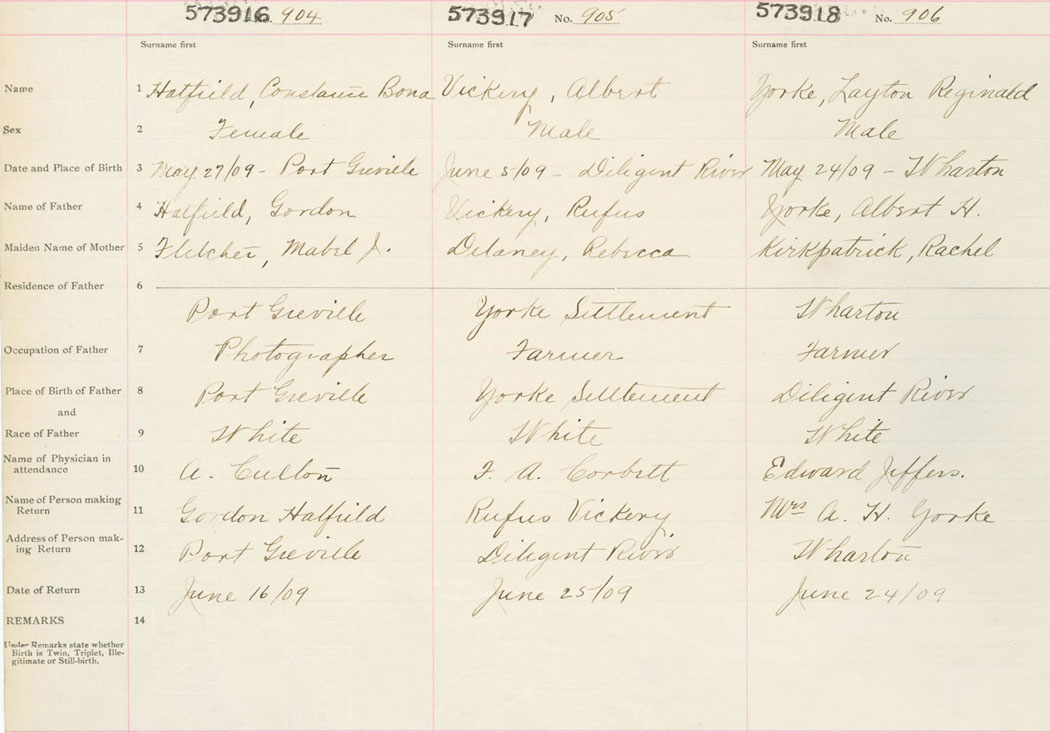 573916 904 573917 No. 905 573918 No. 906
Surname first Surname first Surname first
Name 1 Hatfield, Constance Bona Vickery, Albert Yorke, Layton Reginald
Sex 2 Female Male Male
Date and Place of Birth 3 May 27/09 - Port Greville June 5/09 - Diligent River May 24/09 - Wharton
Name of Father 4 Hatfield, Gordon Vickery, Rufus Yorke, Albert H.
Maiden Name of Mother 5 Fletcher, Mabel J. Delaney, Rebecca Kirkpatrick, Rachel
Residence of Father 6
Port Greville Yorke Settlement Wharton
Occupation of Father 7 Photographer Farmer Farmer
Place of Birth of Father 8 Port Greville Yorke Settlement Diligent River
and
Race of Father 9 White White White
Name of Physician in
attendance 10 A. Cullon F. A. Corbett Edward Jeffers.
Name of Person making
Return 11 Gordon Hatfield Rufus Vickery Mrs A. H. Yorke
Address of Person mak-
ing Return 12 Port Greville Diligent River Wharton
Date of Return 13 June 16/09 June 25/09 June 24/09
REMARKS 14
Under Remarks state whether
Birth is Twin, Triplet, Ille-
gitimate or Still-birth.